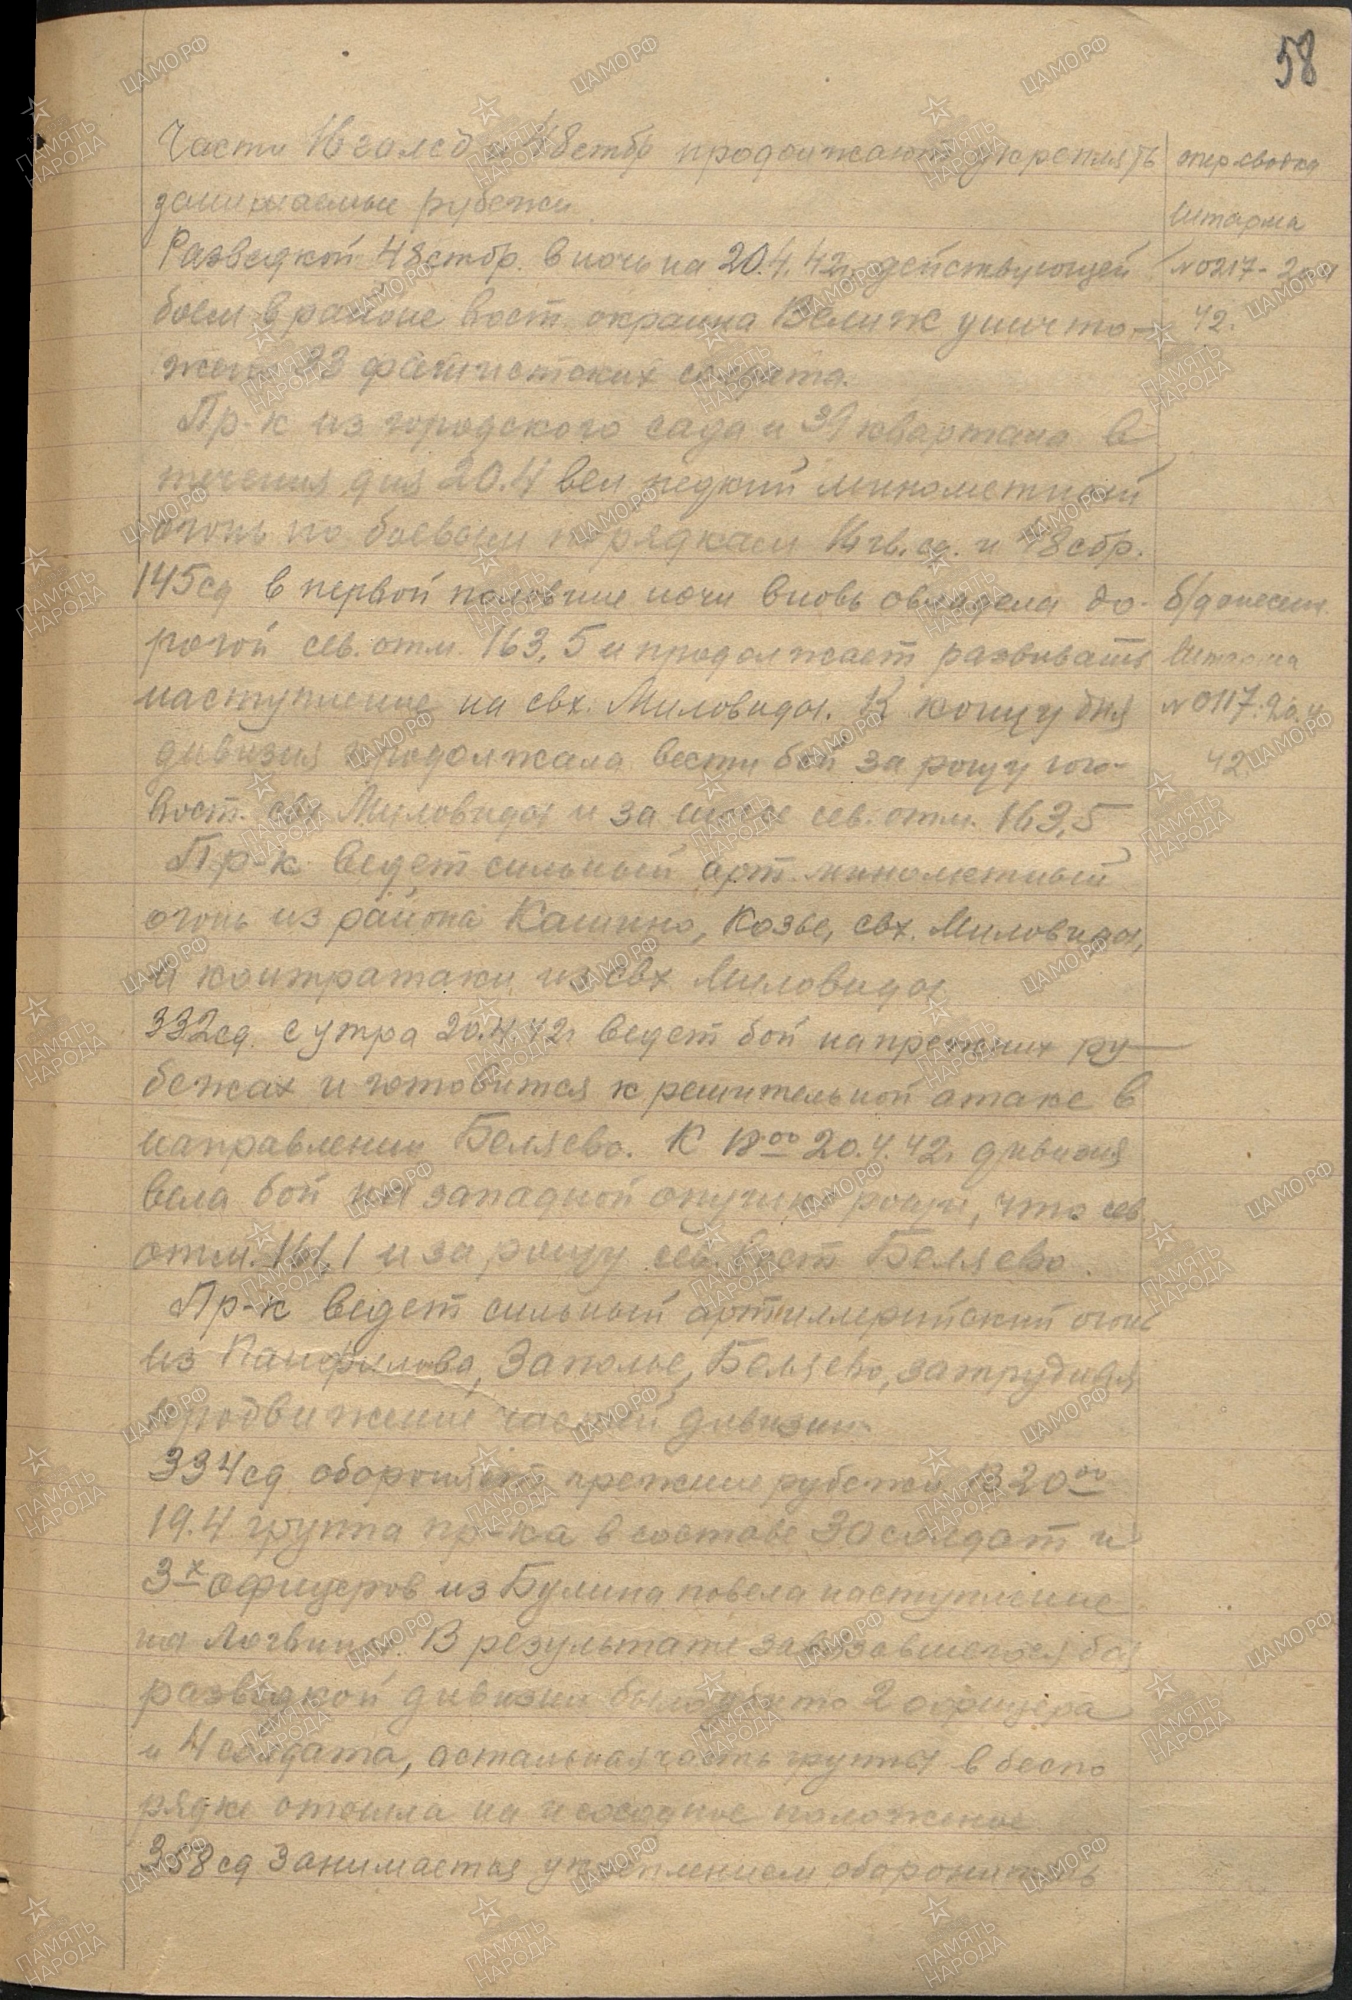 58
Части 16 гв. сд и 48 стбр продолжают укреплять
занимаемые рубежи.
Разведкой 48 стбр. в ночь на 20.4.42г. действующей
боем в районе вост. окраина Велиж уничто-
жено 33 фашистских солдата.
опер.сводка
Штарма
№0217-20.4
42.
Пр-к из городского сада и 31 квартала в
течения дня 20.4 вел редкий минометный
огонь по боевым порядкам 16 гв.сд. и 48 сбр.
145сд в первой половине ночи вновь овладела до-
рогой сев. отм. 163,5 и продолжает развивать
наступление на свх. Миловиды. К концу дня
дивизия продолжала вести бой за рощу юго-
вост. свх Миловиды и за шоссе сев. отм. 163,5
б/донесен.
Штарма
№0117. 20.4
42.
Пр-к ведет сильный арт. минометный
огонь из района Кашино, Козье, свх. Миловиды,
и контратаки из свх Миловиды
332сд. с утра 20.4.42г ведет бой на прежних ру-
бежах и готовится к решительной атаке в
направлении Беляево. К 18⁰⁰ 20.4.42г. дивизия
вела бой на западной опушке рощи, что сев
отм. 161,1 и за рощу сев. вост Беляево.
Пр-к ведет сильный артиллерийский огонь
из Панфилова, Заполье, Беляево, затрудняя
продвижение частей дивизии.
334сд обороняет прежние рубежи. В 20⁰⁰
19.4 группа пр-ка в составе 30 солдат и
3х офицеров из Булина повела наступление
на Логвино. В результате завязавшегося боя
разведкой дивизии было убито 2 офицера
и 4 солдата, остальная часть группы в беспо
рядке отошла на исходное положение
358сд занимается укреплением оборонитель